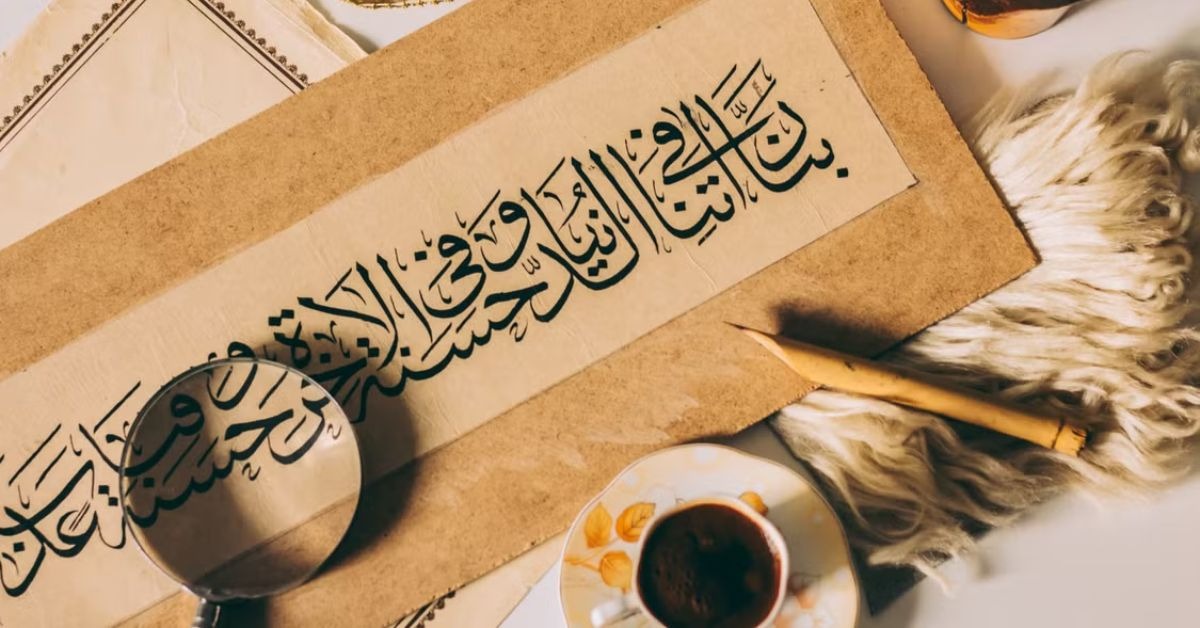 ربنا اتنا في الدنيا حسنة و في الاخرة حسنة و قنا عذاب